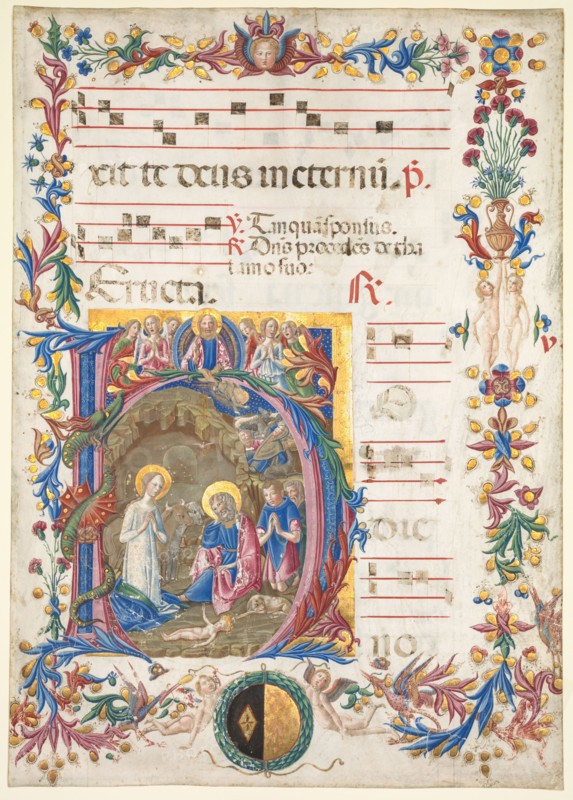 xit te deus in eternū. p̄.
V. Tanquā sponsus.
R. Dn̄s procedēs de tha
lamo suo.
Eructa. R.
v.
H
dic
no